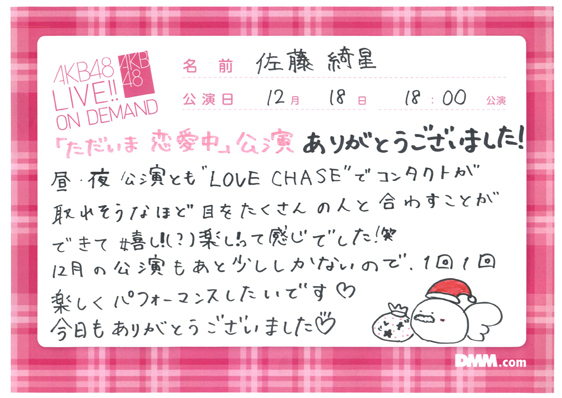 AKB48
LIVE!!
ON DEMAND
AKB
48
名前 佐藤 綺星
公演日 12月 18日 18:00 公演
「ただいま 恋愛中」公演 ありがとうございました!
昼・夜 公演とも"LOVE CHASE"でコンタクトが
取れそうなほど 目をたくさんの人と合わすことが
できて 嬉し!!(?)楽し!!って感じでした!笑
12月の公演もあと少ししかないので、1回1回
楽しくパフォーマンスしたいです♡
今日もありがとうございました♡
DMM.com